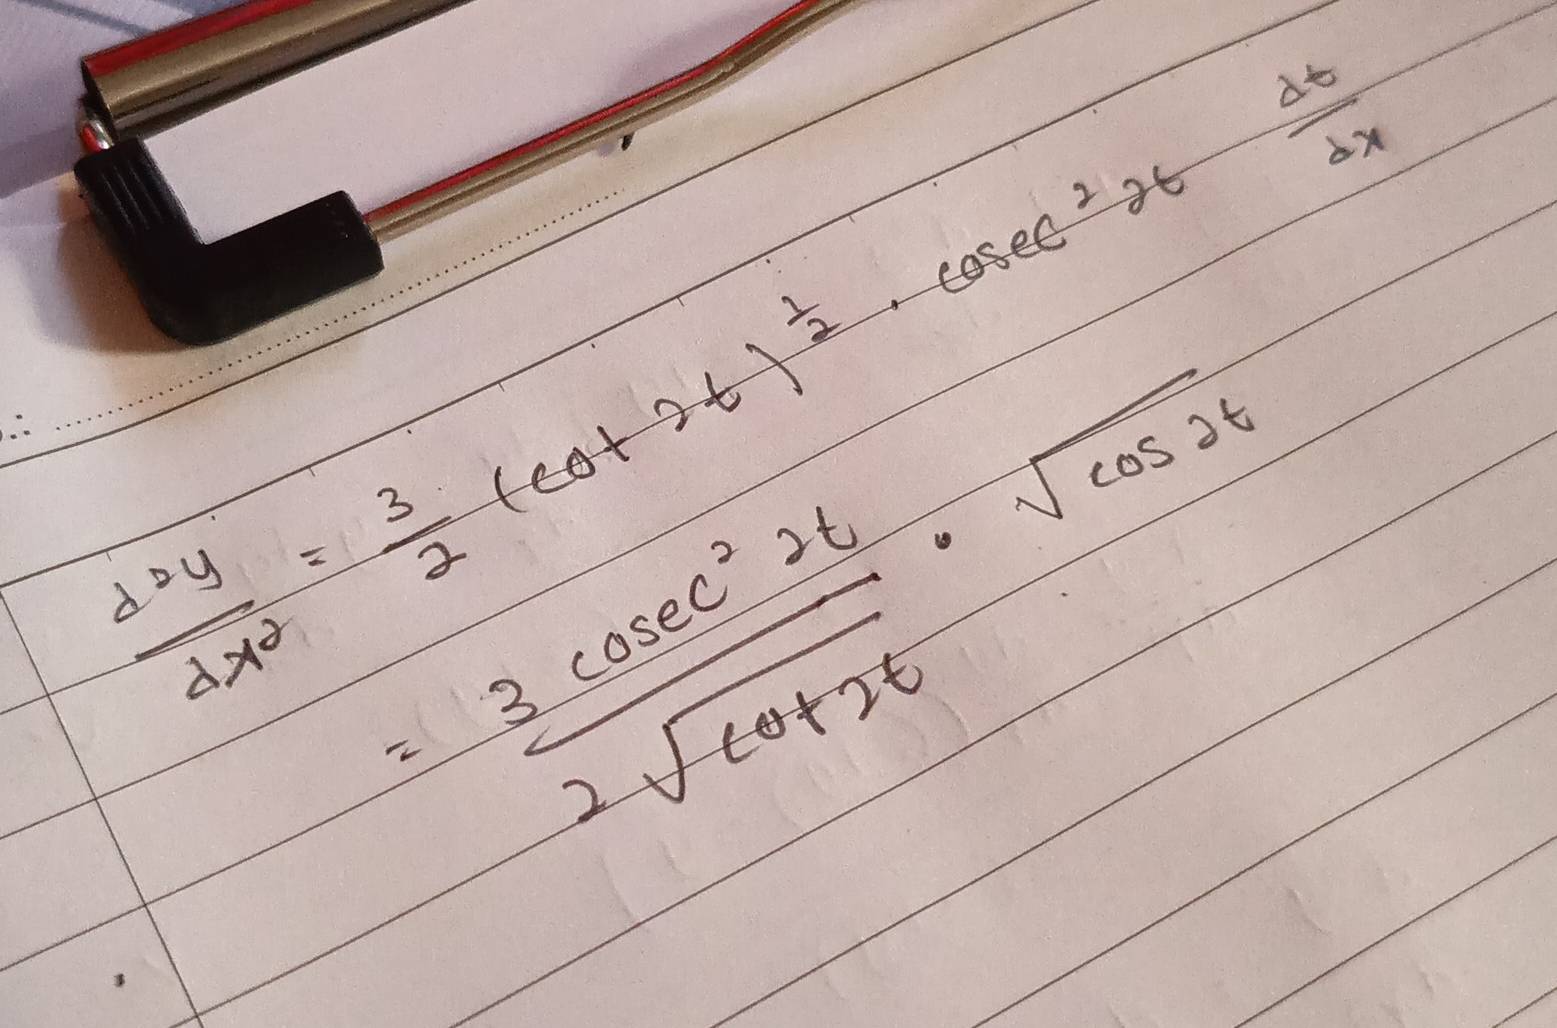 d²y/dx² = 3/2 (cot 2t)^1/2 . cosec² 2t dt/dx
= 3 cosec² 2t / 2√cot 2t . √cos 2t